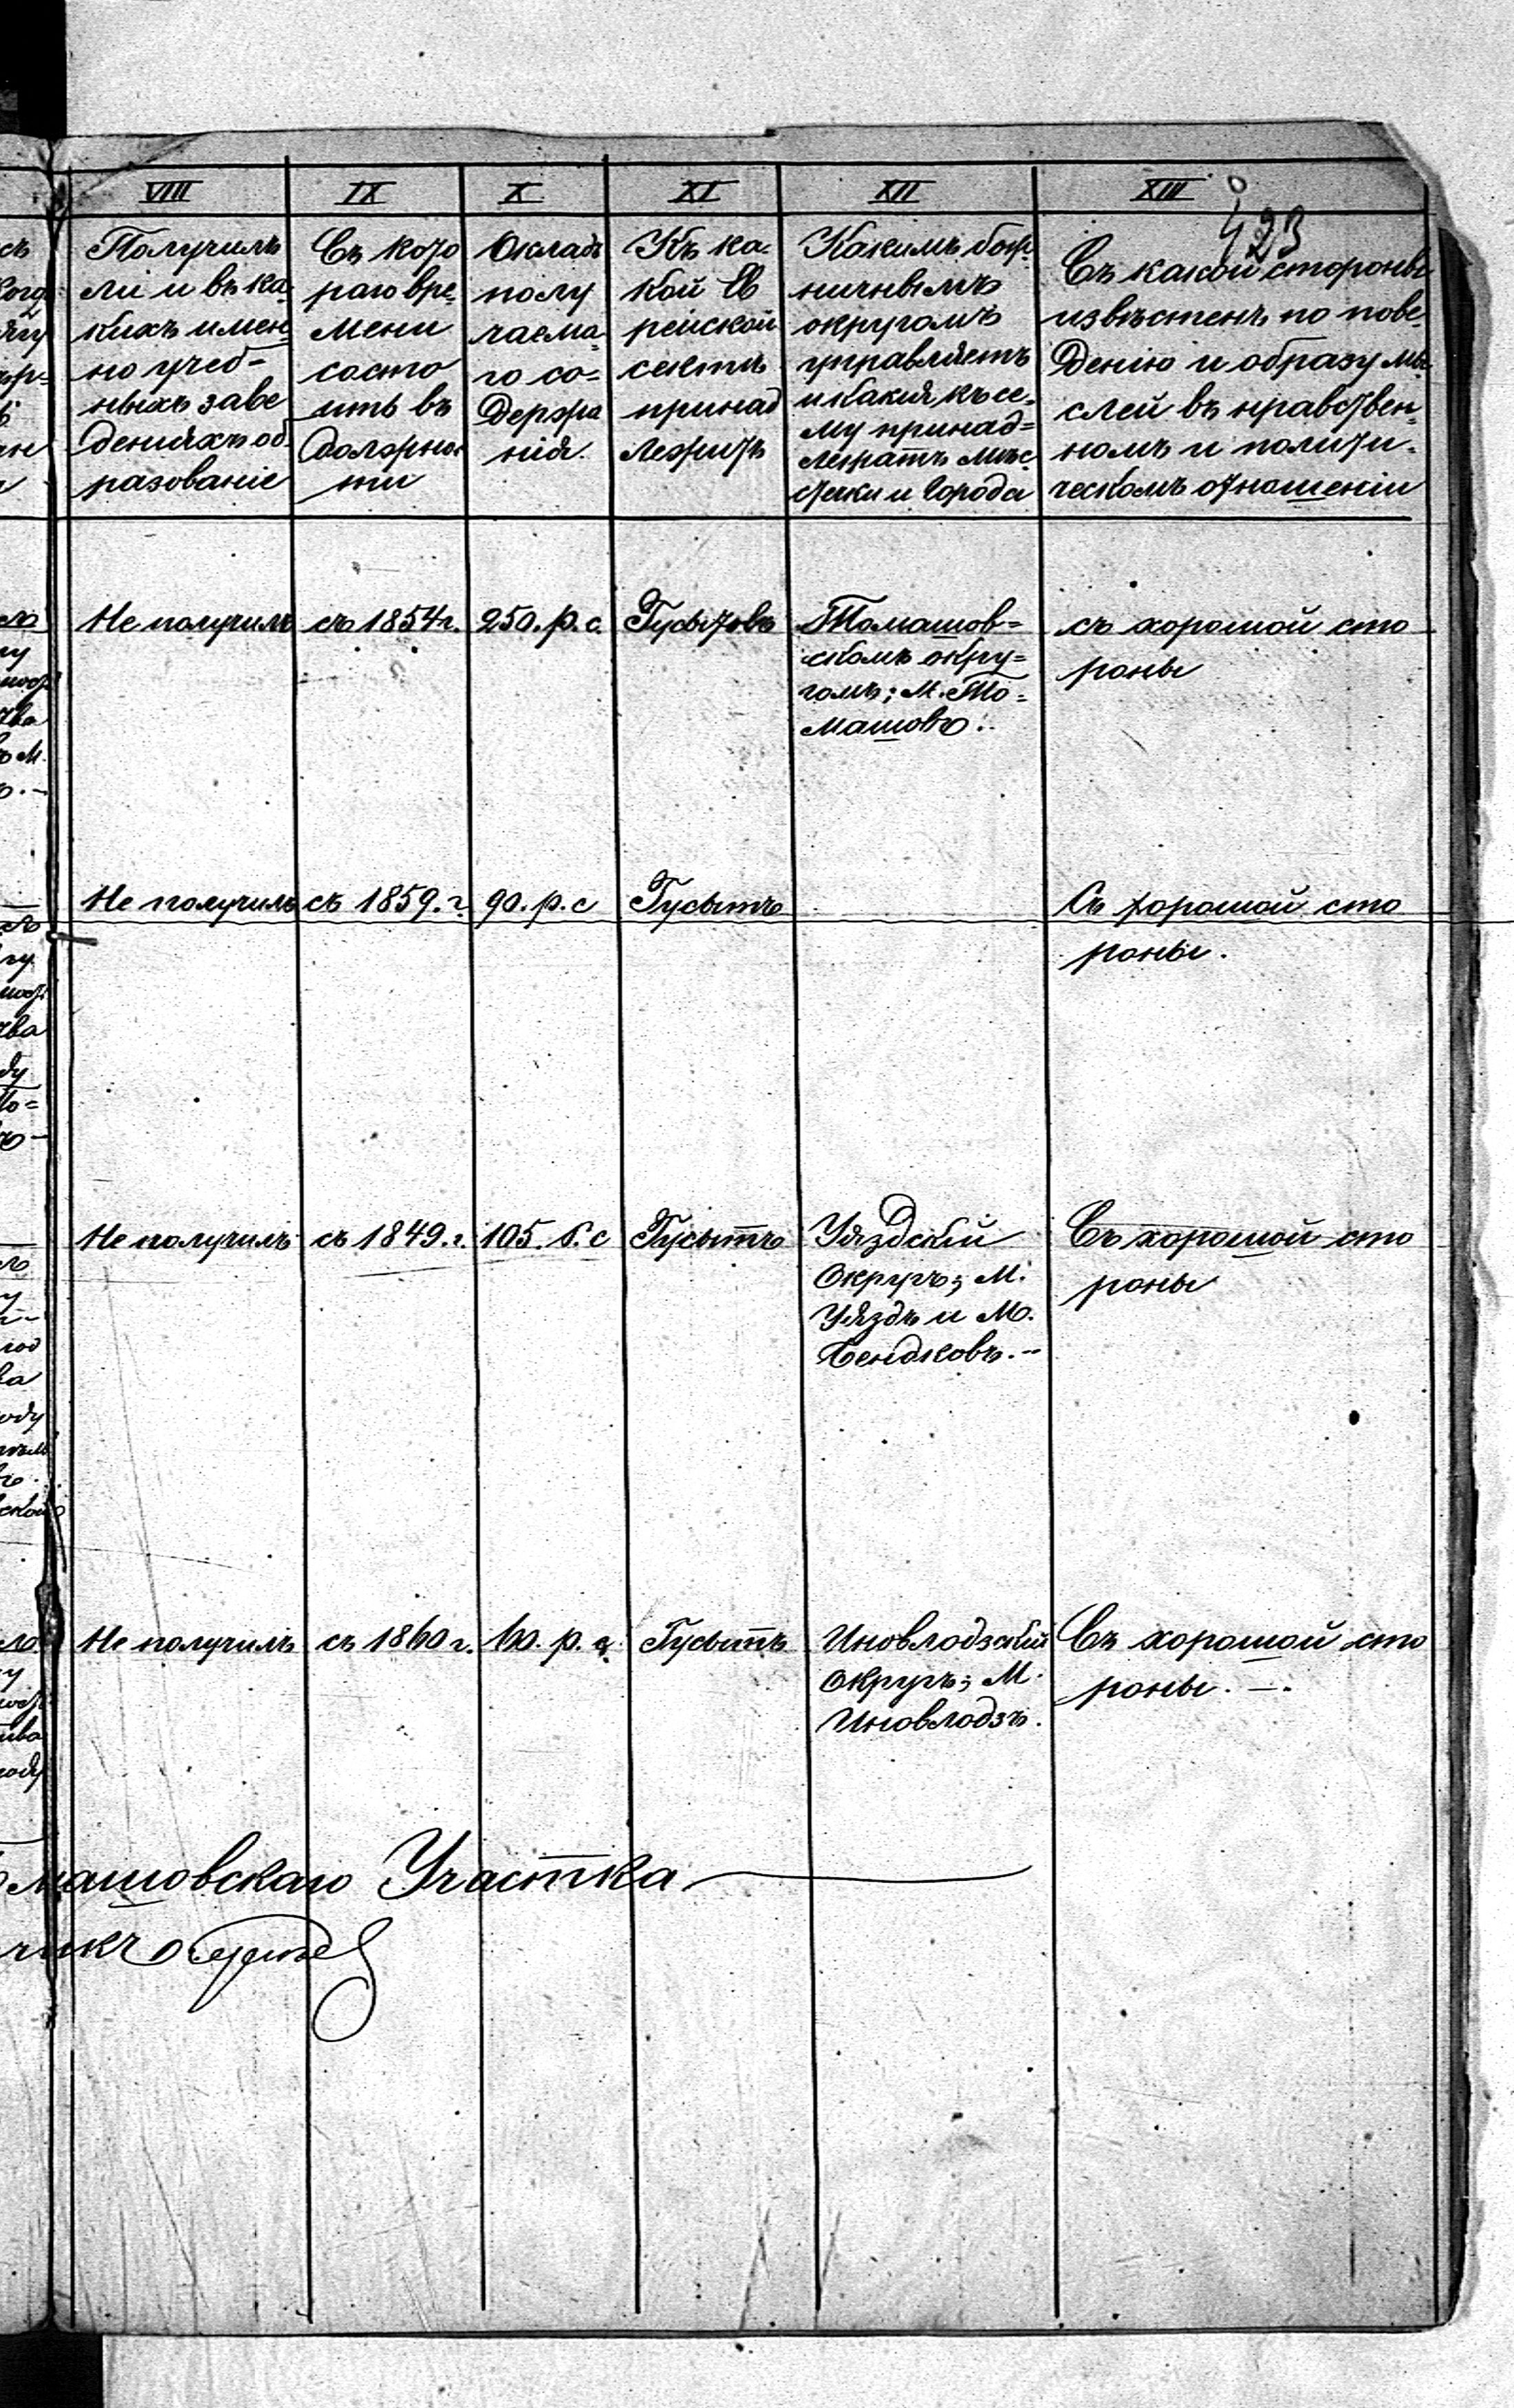 VIII IX X XI XII XIII
423
Получилъ
ли и въ ка-
кихъ имен
но учеб-
ныхъ заве
денияхъ об
разованіе
Съ кото
раго вре-
мени
состо
итъ въ
должнос
ти
Окладъ
полу
чаема-
го со-
держа
нія.
Къ ка-
кой Ев
рейской
сектѣ
принад
лежитъ
Какимъ бож
ничнымъ
округомъ
управляетъ
и какия, къ се-
му принад=
лежатъ мѣс
течки и города
Съ какой стороны
извѣстенъ по пове-
денію и образу мы
слей въ нравствен-
номъ и полити-
ческомъ отношеніи
Не получилъ съ 1854 г. 250. р. с. Гусытовъ Томашов= съ хорошой сто
скомъ окру= роны
гомъ; М. То=
машовъ.
Не получилъ съ 1859. г. 90. р. с Гусытъ Съ хорошой сто
роны.
Не получилъ съ 1849. г. 105. р. с Гусытъ Уяздскій Съ хорошой сто
Округъ; М. роны
Уяздъ и М.
Бендковъ.-
Не получилъ съ 1860 г. 60. р. с. Гусытъ Иновлодзскій Съ хорошой сто
Округъ; М. роны. —.
Иновлодзъ.
машовскаго Участка